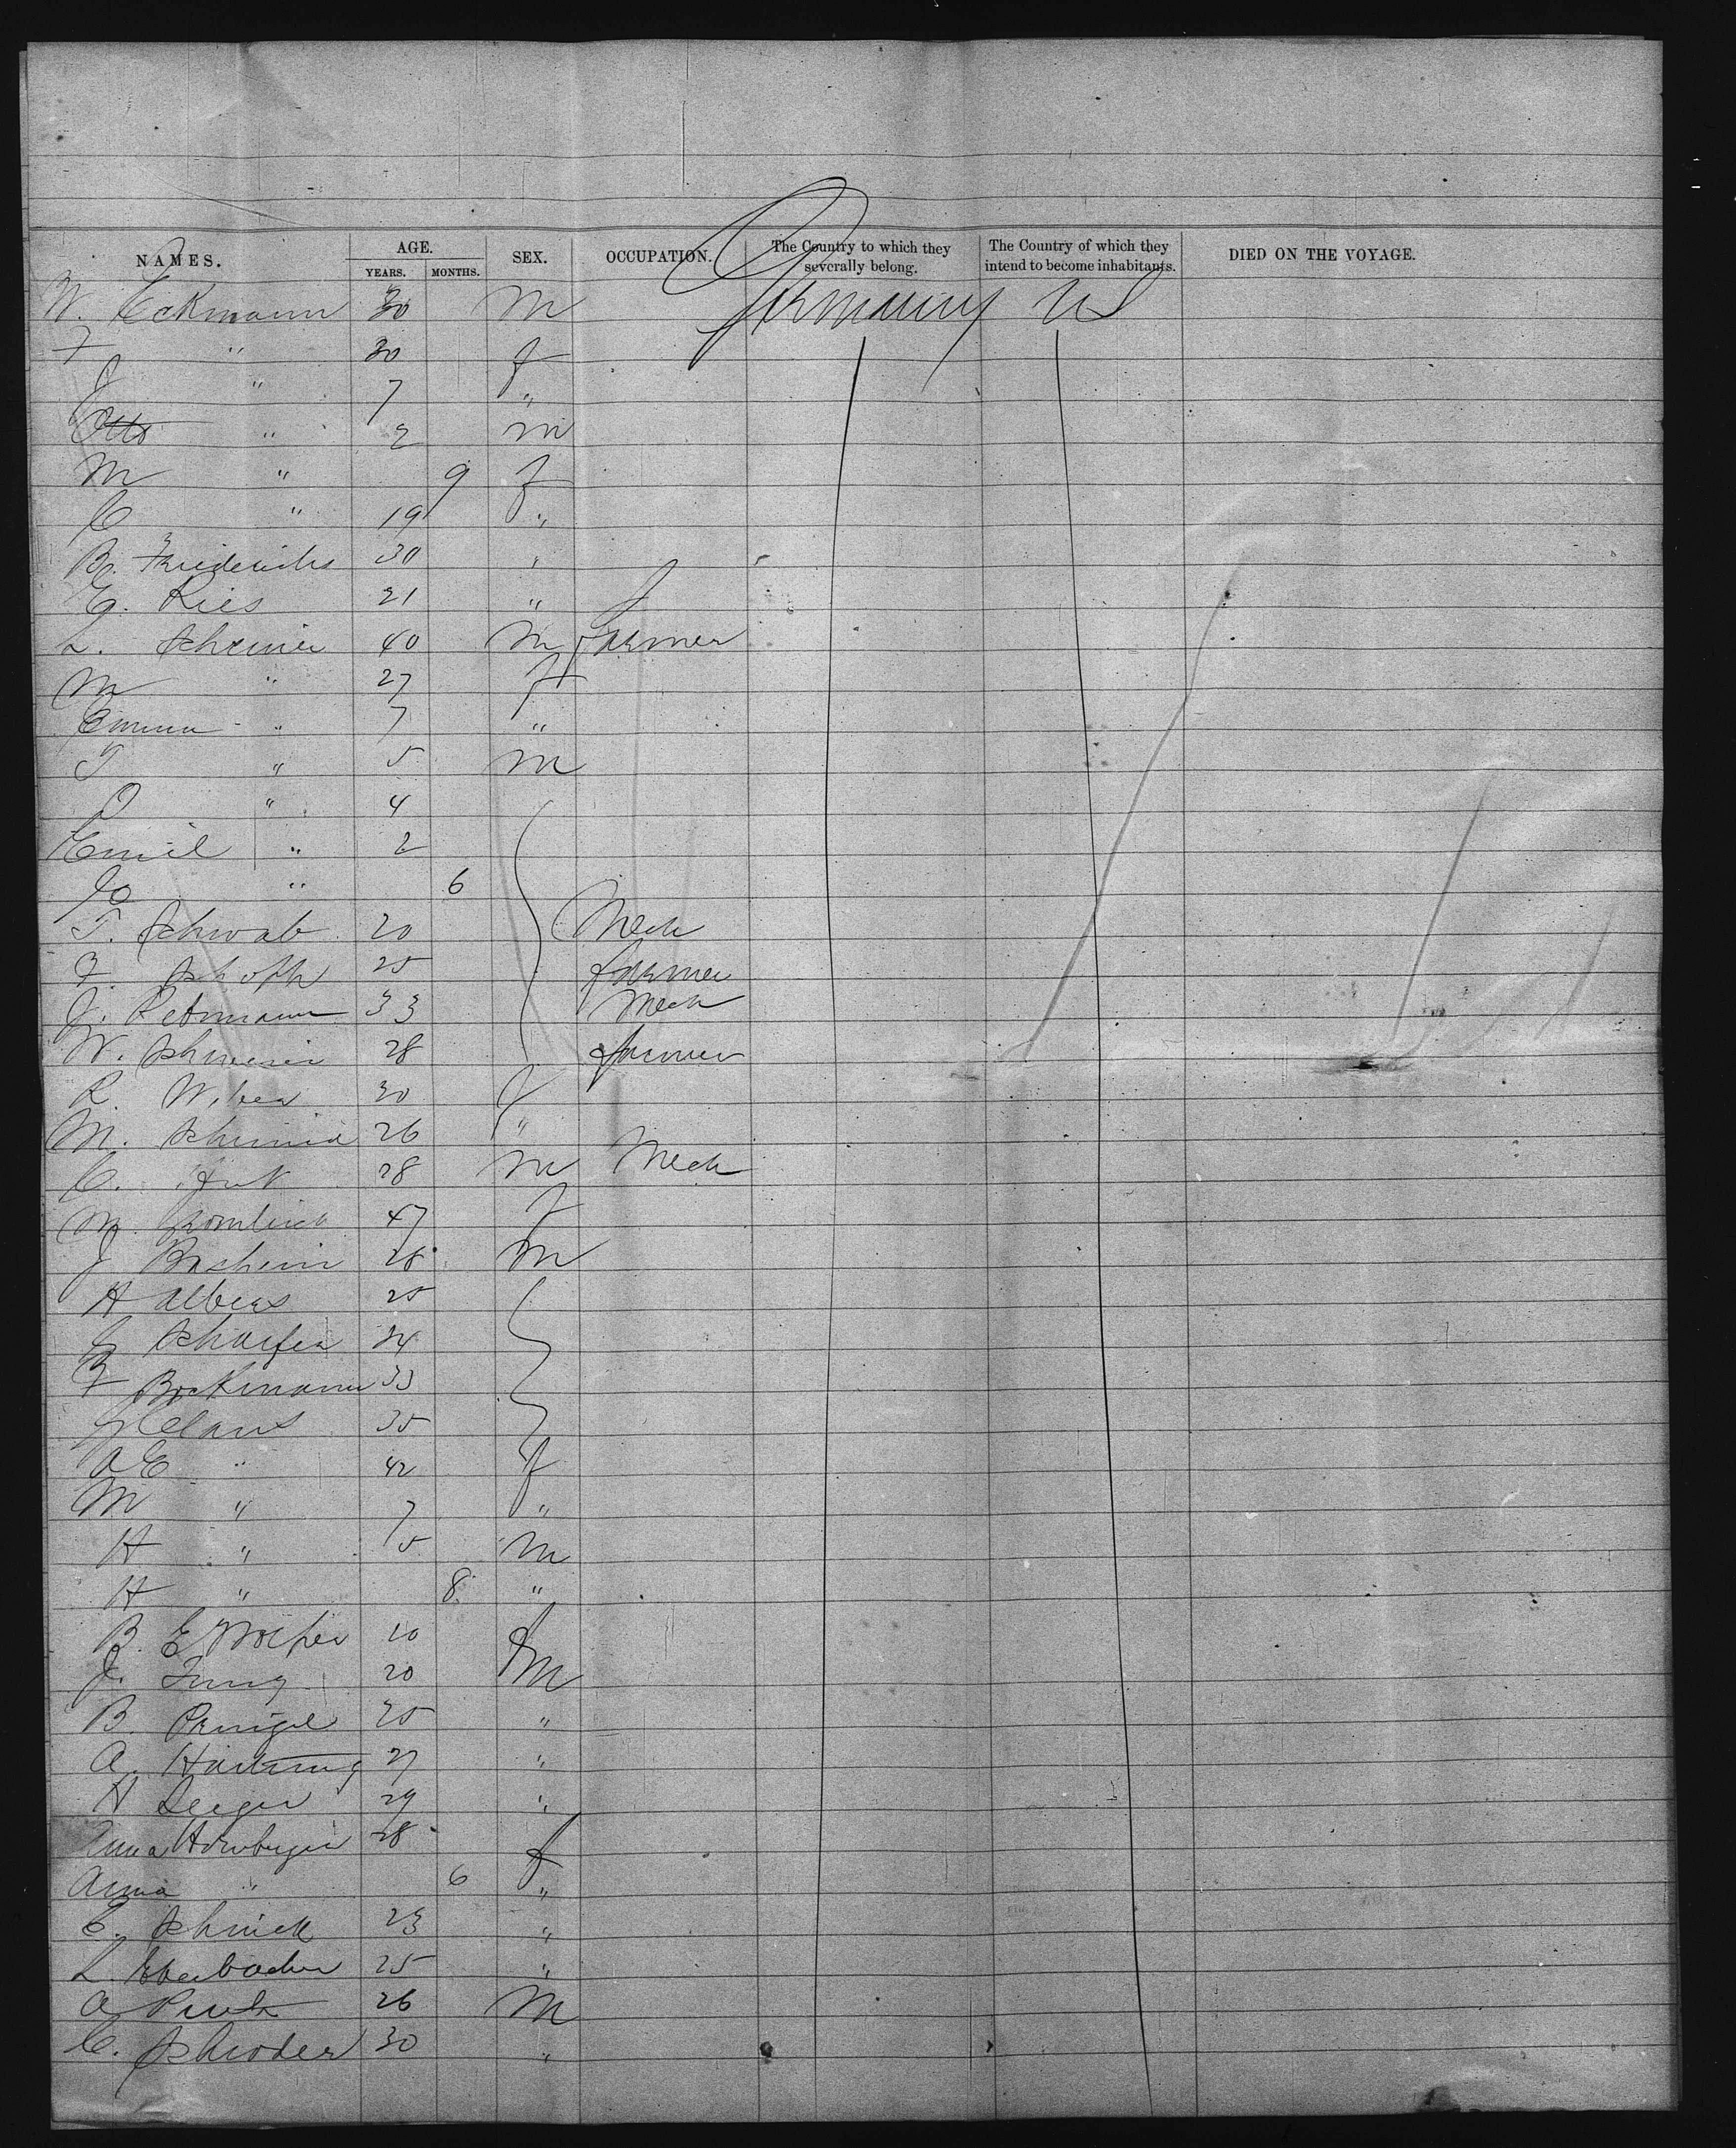 NAMES. AGE. YEARS. MONTHS. SEX. OCCUPATION. The Country to which they severally belong. The Country of which they intend to become inhabitants. DIED ON THE VOYAGE.
W. Eckmann 30 M Germany US
F " 30 f
J " 7 "
Otto " 2 m
M " 9 f
C " 19 "
B. Friederichs 30 "
E. Ries 21 "
L. 40 M farmer
M " 27 f
Emma " 7 "
T " 5 M
O " 4
Emil " 2
" 6
T. Schwab 20 Mech
F. 25 farmer
J. Retmann 33 Mech
W. 28 farmer
R. Weber 30 f
M. 26 "
C. 28 M Mech
M. 47 f
J 28 M
H Albers 25
Schaefer 24
F Bockmann 33
Claus 35
A E " 42 f
M " 7 "
H " 5 M
H " 8 "
B. E 10 f
J. Jung 20 M
B. 25 "
A. Hartung 27 "
H 29 "
Anna 28 f
Anna " 6 "
E. 23 "
L. Eberbacher 25 "
A 26 M
C. Schroder 30 "